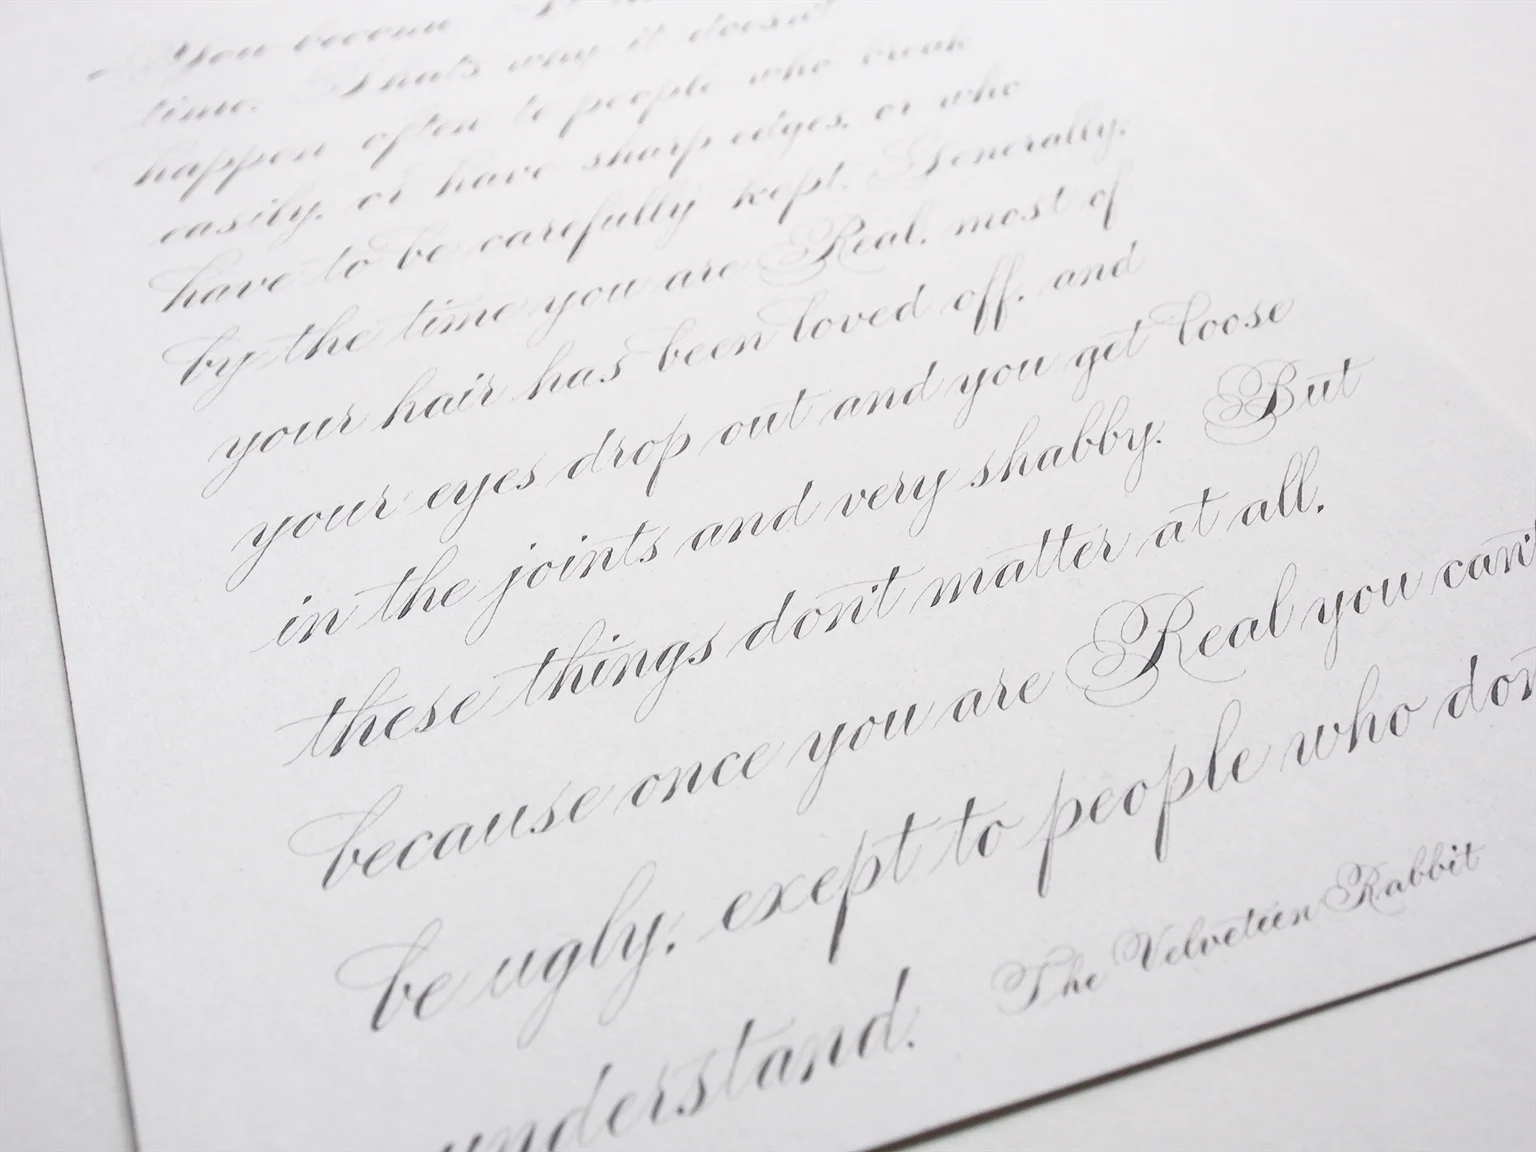 You become
time. That's why it doesn't
happen often to people who break
easily, or have sharp edges, or who
have to be carefully kept. Generally,
by the time you are Real, most of
your hair has been loved off, and
your eyes drop out and you get loose
in the joints and very shabby. But
these things don't matter at all,
because once you are Real you can't
be ugly, exept to people who don
understand.
The Velveteen Rabbit